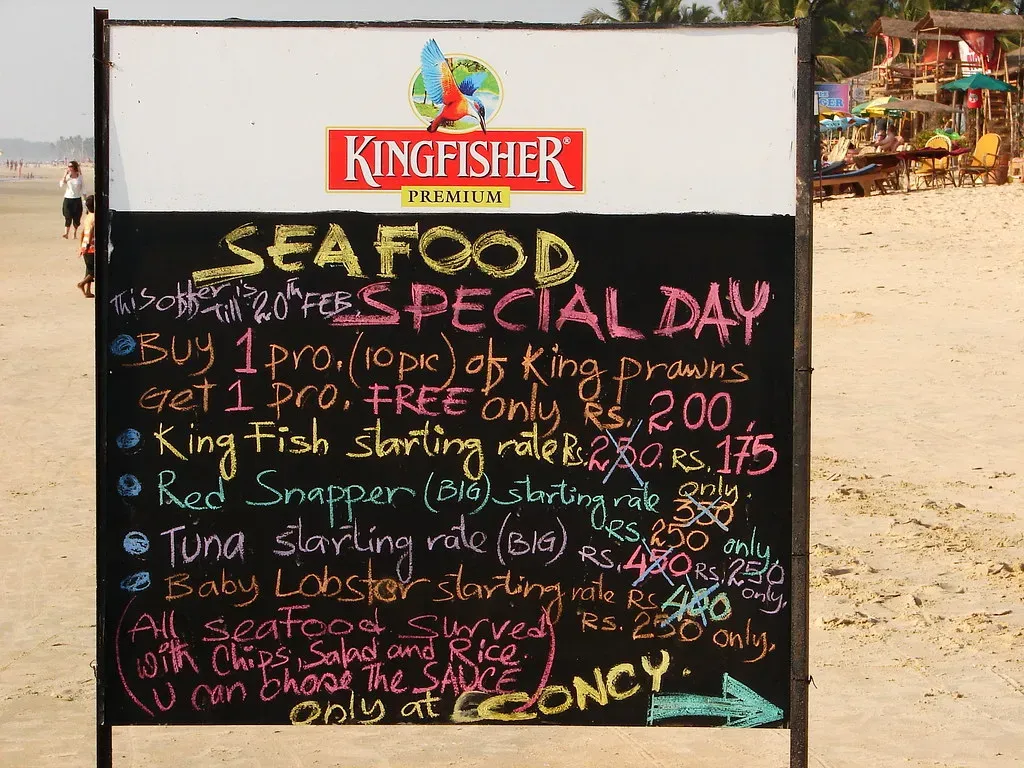 KINGFISHER®
PREMIUM
SEAFOOD
This offer is till 20th FEB.
SPECIAL DAY
Buy 1 pro. (10 pic) of King prawns
get 1 pro. FREE only Rs. 200.
King Fish starting rate Rs. 250. RS. 175
only.
Red Snapper (BIG) starting rate 350
RS. 250 only.
Tuna starling rate (BIG) RS. 450 RS. 250
only.
Baby Lobster starting rate Rs. 400
RS. 250 only.
(All seaFood Surved
with Chips, Salad and Rice.
U can chose The SAUCE)
only at CONCY.
GER